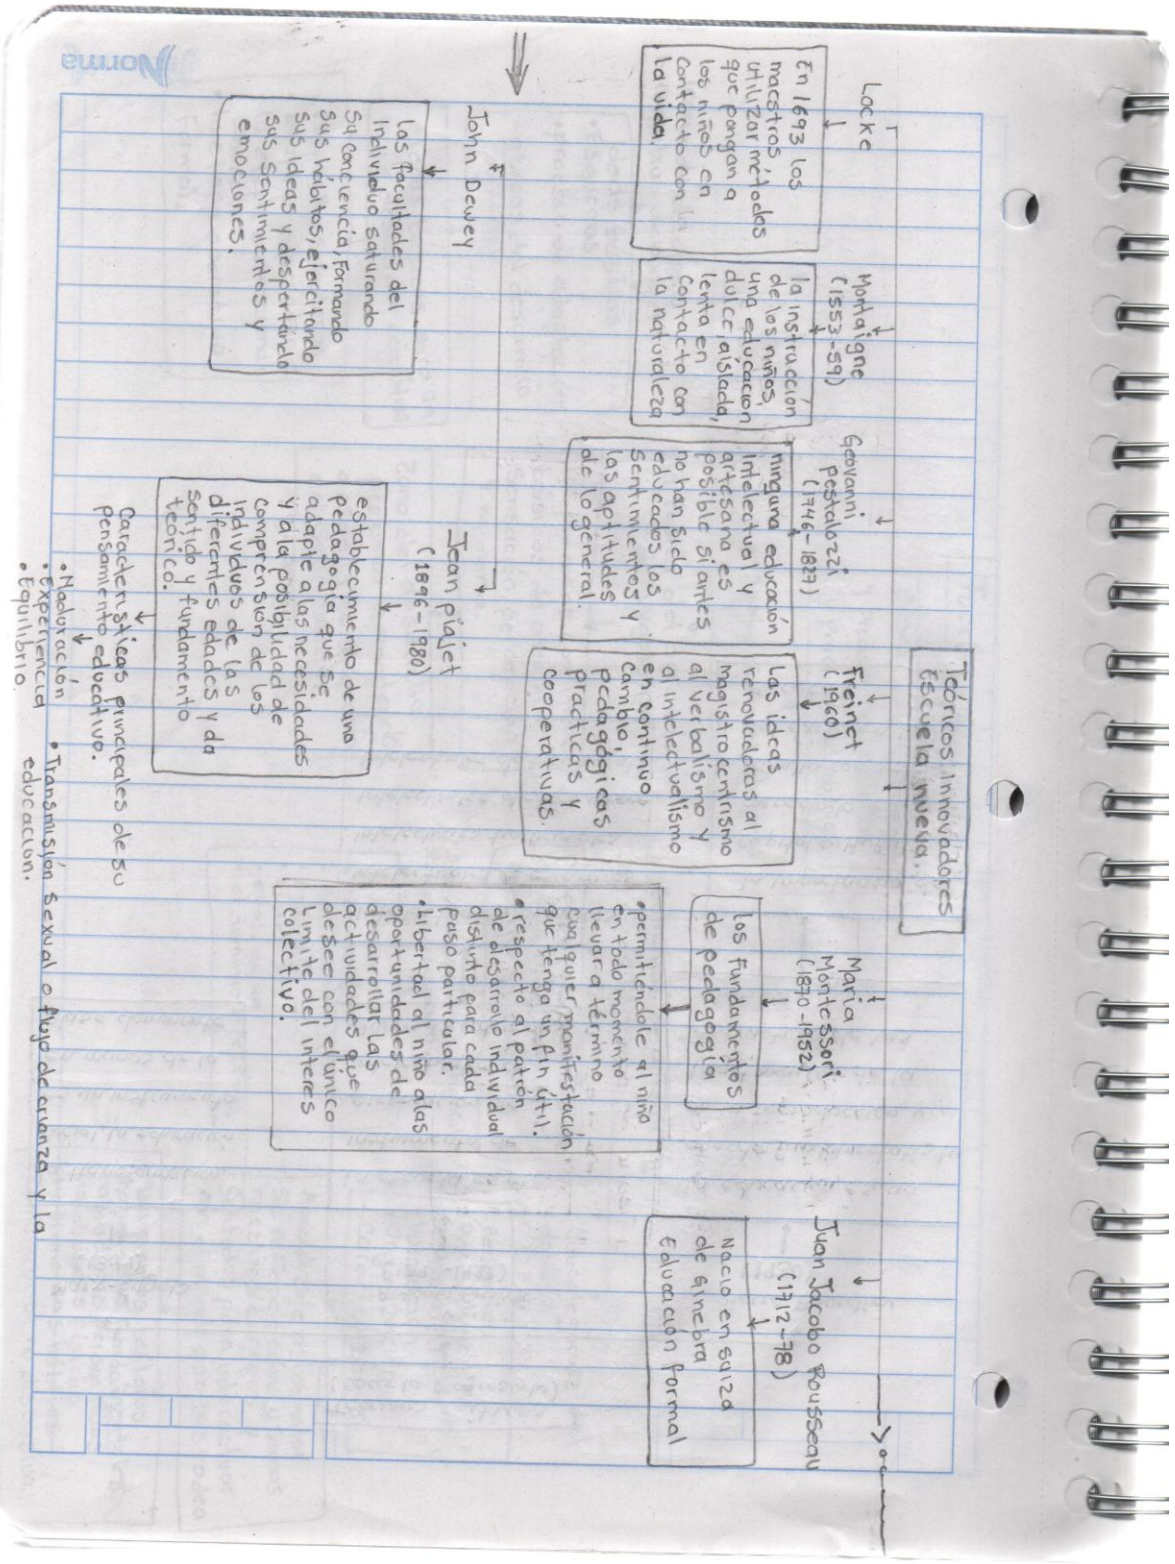 Teóricos innovadores
Escuela nueva.
Locke
En 1693 los
maestros
utilizar métodos
que pongan a
los niños en
contacto con la
la vida.
Montaigne
(1553-59)
la instrucción
de los niños,
una educación
dulce, aislada,
lenta en
contacto con
la naturaleza
Geovanni
pestallozzi
(1746-1827)
ninguna educación
intelectual y
artesana es
posible si antes
no han sido
educados los
sentimientos y
las aptitudes
de lo general.
Freinet
(1960)
Las ideas
renovadoras al
magistrocentrismo
al verbalismo y
al intelectualismo
en continuo
cambio,
pedagógicas
practicas y
cooperativas.
Maria
Montessori
(1870-1952)
los fundamentos
de pedagogía
•permitiéndole al niño
en todo momento
llevar a término
cualquier manifestación
que tenga un fin útil.
•respecto al patrón
de desarrollo individual
distinto para cada
paso particular.
•Libertad al niño a las
oportunidades de
desarrollar las
actividades que
desee con el único
limite del interes
colectivo.
Juan Jacobo Rousseau
(1712-78)
Nacio en suiza
de ginebra
Educación formal
John Dewey
Las facultades del
individuo saturando
su conciencia, Formando
sus hábitos, ejercitando
sus ideas y despertando
sus sentimientos y
emociones.
Jean piajet
(1896-1980)
establecimiento de una
pedagogía que se
adapte a las necesidades
y a la posiblidad de
comprensión de los
individuos de las
diferentes edades y da
sentido y fundamento
teórico.
Características principales de su
pensamiento educativo.
•Maduración
•Experiencia
•Equilibrio
•Transmisión sexual o flujo de crianza y la
educación.
Norma